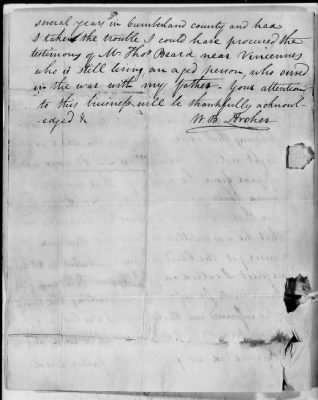 several years in Cumberland county and had
I taken the trouble I could have procured the
testimony of Mr Thos Beard near Vincennes
who is still living an aged person, who served
in the war with my father. Your attention
to this business will be thankfully acknowl-
edged &
W. B. Archer